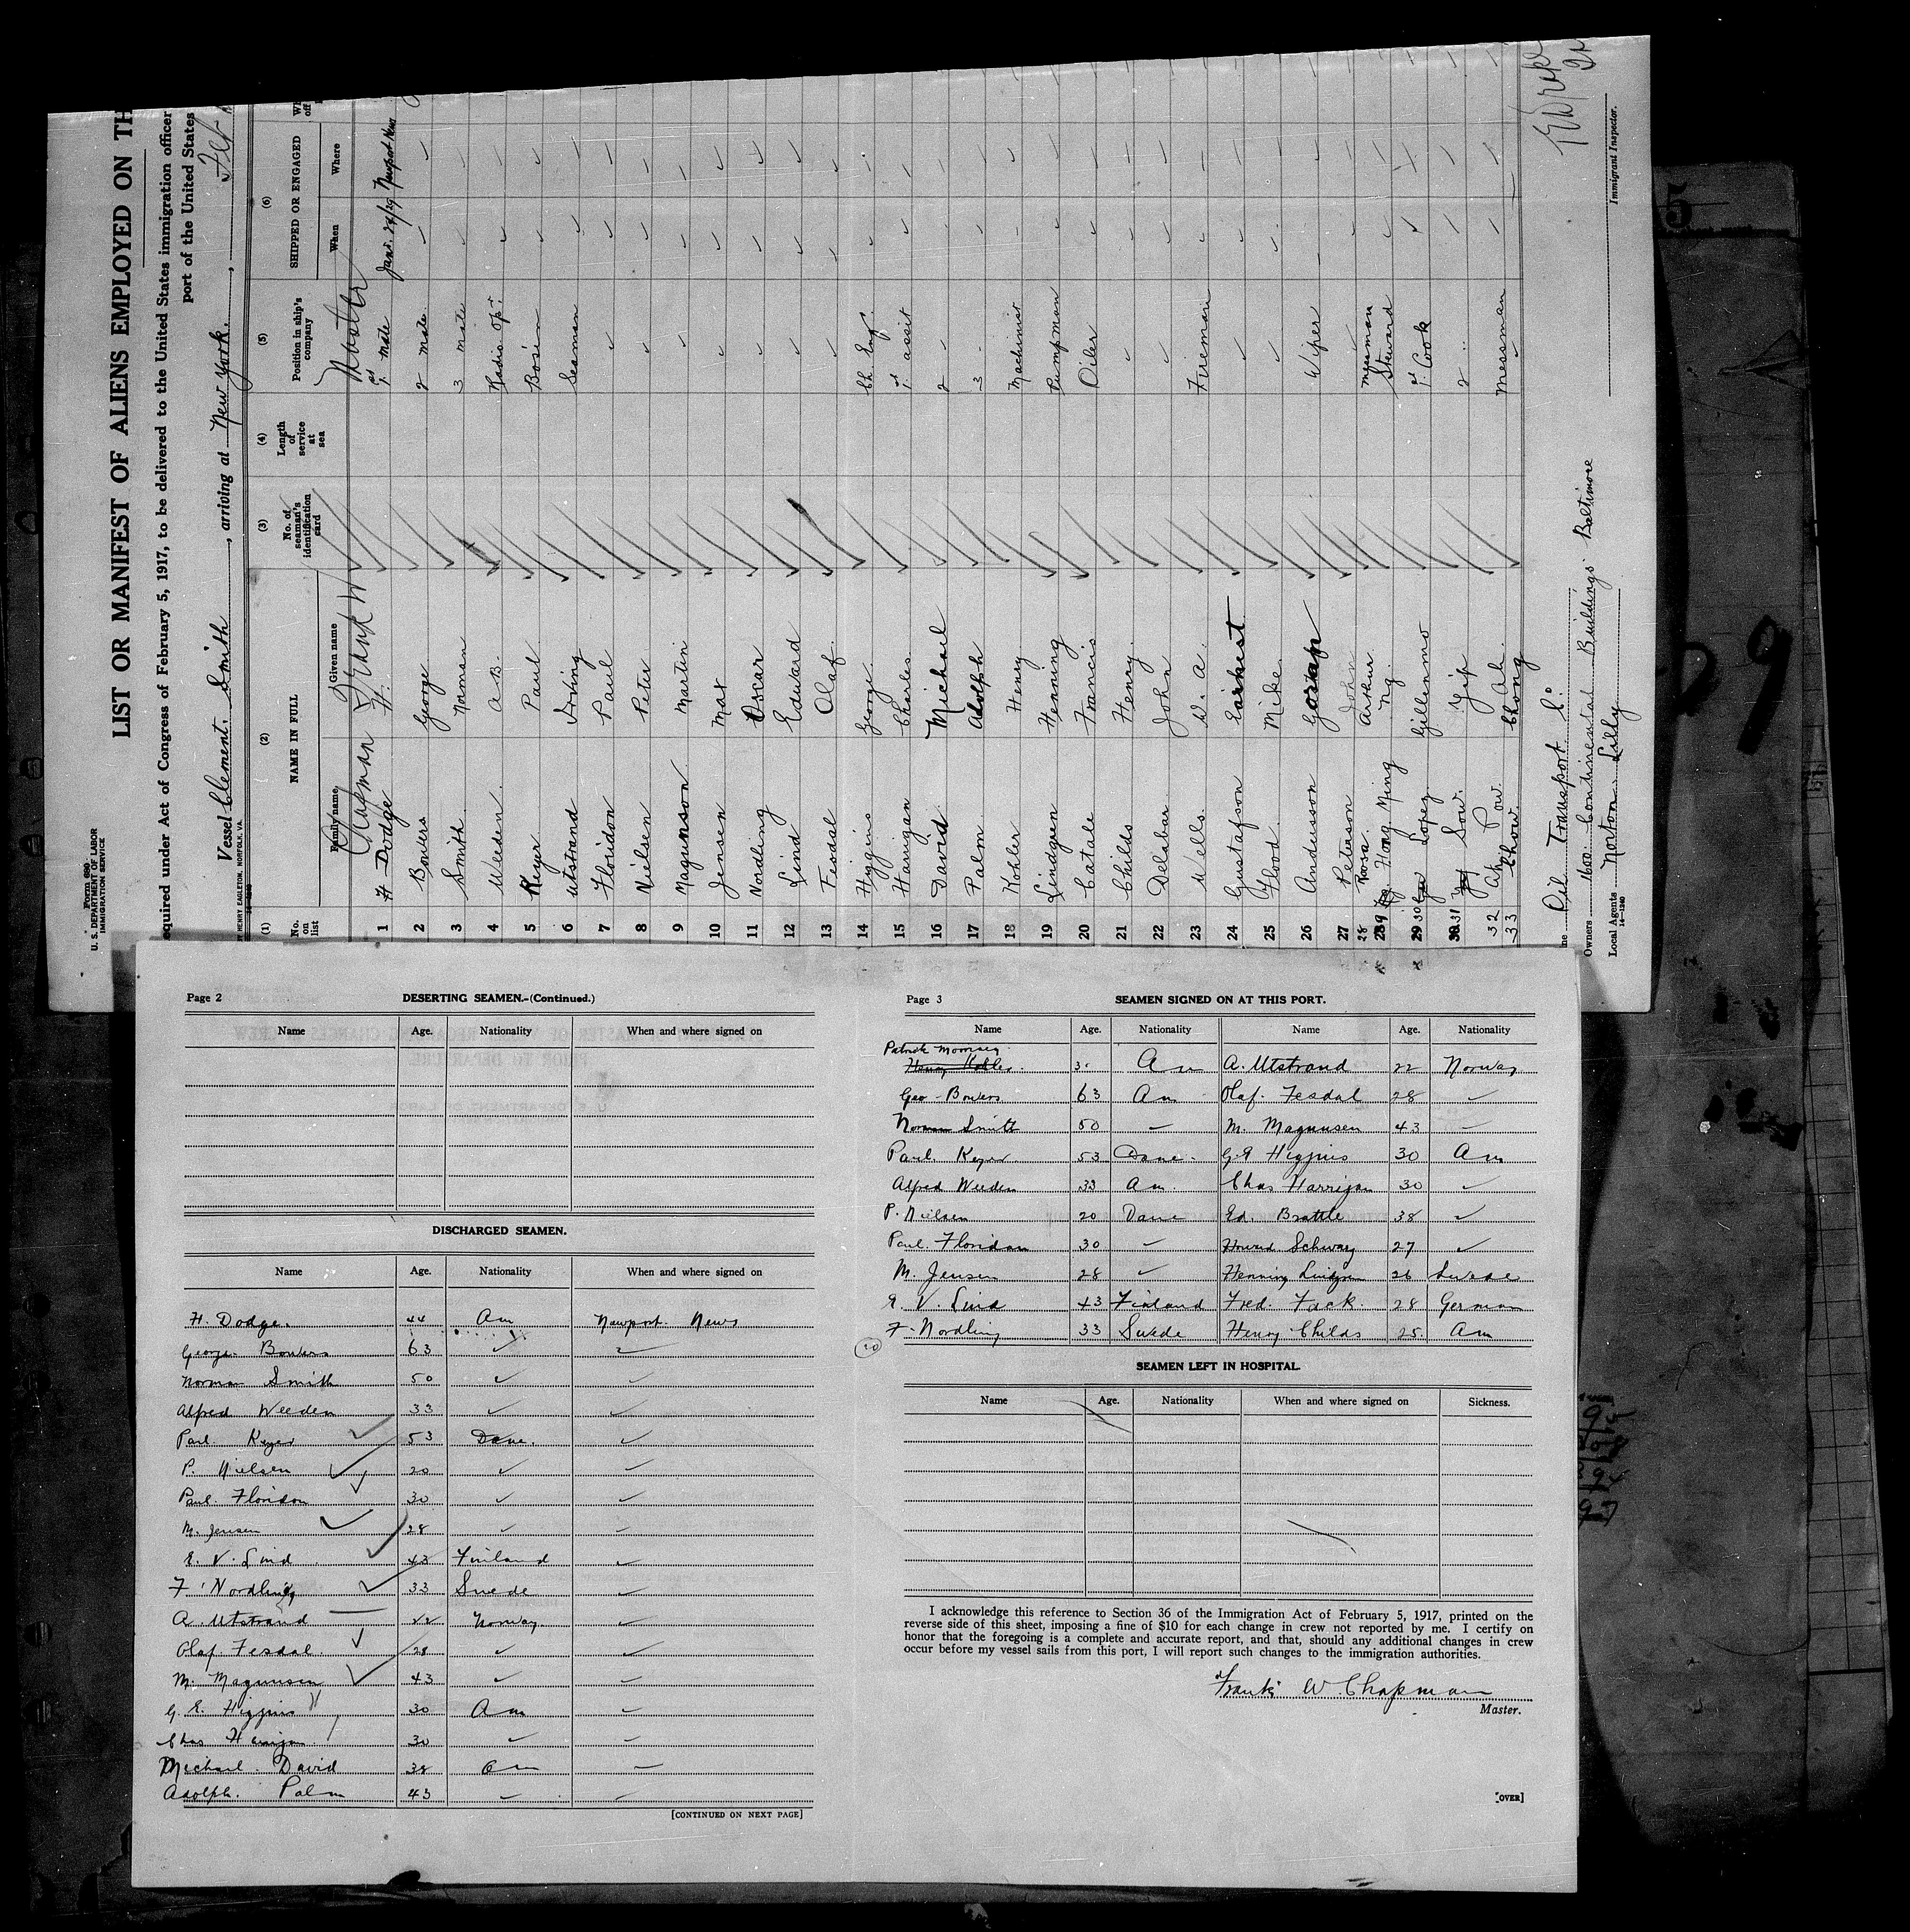 Form 680
U. S. DEPARTMENT OF LABOR
IMMIGRATION SERVICE
LIST OR MANIFEST OF ALIENS EMPLOYED ON TH
equired under Act of Congress of February 5, 1917, to be delivered to the United States immigration officer
port of the United States
Vessel Clement. Smith, arriving at New York.,
HENRY EAGLETON, NORFOLK, VA.
(1) (2) (3) (4) (5) (6)
No. on list NAME IN FULL No. of seaman's identification card Length of service at sea Position in ship's company SHIPPED OR ENGAGED
Family name Given name When Where
Chapman Frank W Master
1 H Dodge H. 1st mate Jan. 28/29 Newport News
2 Bowers George 2 mate. ✓ ✓
3 Smith. Norman 3 mate ✓ ✓
4 Weeden. A.B. Radio Opr. ✓ ✓
5 Keyer Paul Bosin ✓ ✓
6 Utstrand Irving Seaman ✓ ✓
7 Floridon Paul ✓ ✓ ✓
8 Nielsen Peter ✓ ✓ ✓
9 Magunson Martin ✓ ✓ ✓
10 Jensen Max ✓ ✓ ✓
11 Nordling Oscar ✓ ✓ ✓
12 Lind Edward ✓ ✓ ✓
13 Fesdal Olaf. ✓ ✓ ✓
14 Higgins George. Ch. Eng. ✓
15 Harrigan Charles. 1st assit ✓ ✓
16 David Michael 2 ✓
17 Palm Adolph 3 ✓
18 Kohler Henry Machinist ✓
19 Lindgren Henning Pumpman ✓ ✓
20 Catale Francis Oiler ✓ ✓
21 Childs Henry. ✓ ✓ ✓
22 Delabar. John ✓ ✓ ✓
23 Wells. W. A. Fireman ✓
24 Gustafson Earnest ✓ ✓ ✓
25 Flood. Mike. ✓ ✓ ✓
26 Andersson Goran Wiper ✓
27 Peterson John ✓ ✓ ✓
28 Rosa. Arthur. messman
29 Hong Ming Ng. Steward ✓
30 Lopez Gillermo 1st Cook ✓
31 Sow. Yip 2 "
32 Ah Pow. Ah.
33 Chow. Chong Messman ✓
ne Oil Transport Co
Owners 1600 Continental Buildings. Baltimore
Local Agents Norton Lilly
14-1240
Immigrant Inspector.
Page 2 DESERTING SEAMEN.-(Continued.)
Name Age. Nationality When and where signed on
DISCHARGED SEAMEN.
Name Age. Nationality When and where signed on
H. Dodge. 44 Am Newport News
George Bowers 63 ✓ ✓
Norman Smith 50 ✓ ✓
Alfred Weeden 33 ✓ ✓
Paul Keyer 53 Dane. ✓
P. Nielsen 20 ✓ ✓
Paul. Floridon 30 ✓ ✓
M. Jensen 28 ✓ ✓
E. V. Lind 43 Finland ✓
F. Nordling 33 Swede ✓
A. Utstrand 22 Norway ✓
Olaf. Fesdal. 28 ✓ ✓
M. Magunsen 43 ✓ ✓
G. E. Higgins 30 Am ✓
Chas Harrigan. 30 ✓ ✓
Michael. David 38 Am ✓
Adolph. Palm 43 ✓ ✓
[CONTINUED ON NEXT PAGE]
Page 3 SEAMEN SIGNED ON AT THIS PORT.
Name Age. Nationality Name Age. Nationality
Patrick Morrisey.
Henry Kohler. Am A. Utstrand 22 Norway
Geo Bowers 63 Am Olaf. Fesdal 28 ✓
Norman Smith 50 ✓ M. Magunsen 43 ✓
Paul. Keyer. 53 Dane. G.E Higgins 30 Am
Alfred Weeden 33 Am. Chas Harrigan 30 ✓
P. Nielsen 20 Dane Ed. Brattle 38 ✓
Paul. Floridon 30 ✓ Howard Schwarz 27 ✓
M. Jensen 28 ✓ Henning Lindgren 26 Swede
E. V. Lind 43 Finland Fred. Fack. 28 German
F. Nordling 33 Swede Henry Childs 25. Am
20
SEAMEN LEFT IN HOSPITAL.
Name Age. Nationality When and where signed on Sickness.
I acknowledge this reference to Section 36 of the Immigration Act of February 5, 1917, printed on the
reverse side of this sheet, imposing a fine of $10 for each change in crew not reported by me. I certify on
honor that the foregoing is a complete and accurate report, and that, should any additional changes in crew
occur before my vessel sails from this port, I will report such changes to the immigration authorities.
Frank W Chapman
Master.
[OVER]